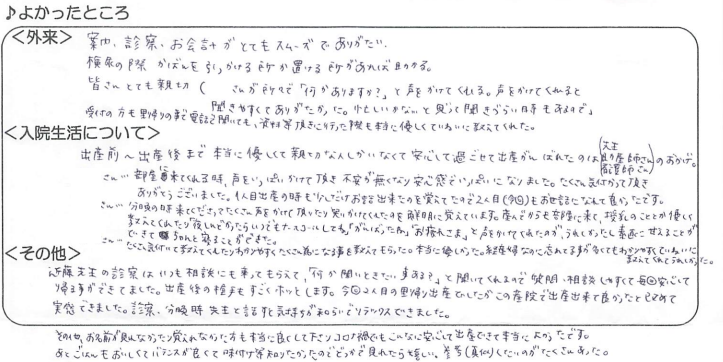 ♪よかったところ
<外来> 案内、診察、お会計がとてもスムーズでありがたい。
検尿の際 かばんを引っかける所か置ける所があれば助かる。
皆さんとても親切( さんが所々で「何かありますか?」と声をかけてくれる。声をかけてくれると
聞きやすくてありがたかった。忙しいかな…と思って聞きづらい時もあるので」
受付の方も里帰りの事で電話で聞いても、資料等頂きに行った際も本当に優しくていねいに教えてくれた。
<入院生活について>
出産前〜出産後まで本当に優しくて親切な人しかいなくて安心して過ごせて出産がんばれたのは(先生 助産師さん 看護師さん)のおかげ。
さん… 部屋に来てくれる時、声をいっぱいかけて頂き不安が無くなり安心感でいっぱいになりました。たくさん気付かって頂き
ありがとうございました。1人目出産の時も少しだけお話出来たのを覚えてたので2人目(今回)もお世話になれて良かったです。
さん… 分娩の時来てくださってたくさん声を掛けて頂いたり笑いかけてくれたのを鮮明に覚えています。産んでからも部屋に来て、授乳のことが優しく
教えてくれたり「夜しんどかったらいつでもナースコールしてね」「がんばったね」「お疲れさま」と声をかけてくれたのが、うれしかったし素直に甘えることが
できてちゃんと寝ることができた。
さん… たくさん気付いて教えてくれたりわかりやすくたくさん為になる事を教えてもらった。本当に優しかった。経産婦なのに忘れてる事が多くてもわかりやすくていねいに
教えてくれてうれしかった。
<その他>
近藤先生の診察はいつも相談にも乗ってもらえて、「何か聞いときたい事ある?」と聞いてくれるので質問・相談しやすくて毎回安心して
帰る事ができてました。出産後の検診もすごくホッとします。今回2人目の里帰り出産でしたがこの産院で出産出来て良かったと改めて
実感できました。診察、分娩時 先生と話すと気持ちが和らいでリラックスできました。
その他、お名前が見れなかった覚えれなかった方も本当に良くして下さりコロナ禍でもこんなに安心して出産できて本当によかったです。
あとごはんもおいしくてバランスが良くて味付け等知りたかったのでどこかで見れたら嬉しい。参考(真似)したいのがたくさんあった。